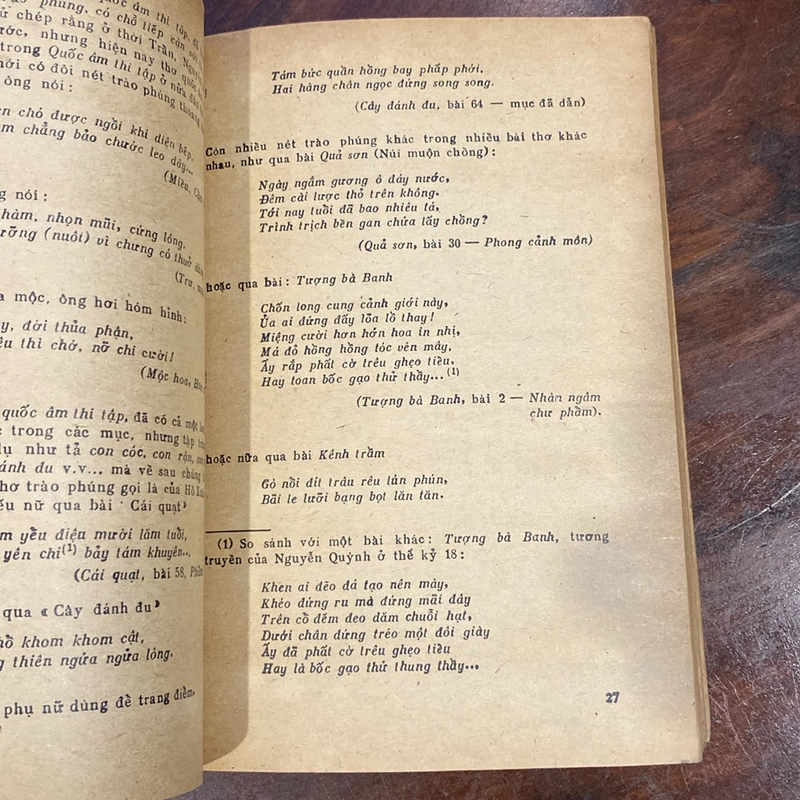 quốc âm thi tập, đã
trào phúng, có chỗ tiếp cận
chép rằng ở thời Trần, Nguyễn
nhưng hiện nay thơ quốc
trong Quốc âm thi tập ở nửa đầu
mới có đôi nét trào phúng
ông nói :
chó được ngồi khi diện bếp,
chẳng bảo chước leo dây...
(Miêu,
nói :
hàm, nhọn mũi, cứng lông,
(nuôi) vì chưng có thuở
(Trư,
mộc, ông hơi hóm hỉnh:
đời thừa phận,
thì chớ, nỡ chi cười!
(Mộc hoa,
quốc âm thi tập, đã có cả một
trong các mục, nhưng tập
như tả con cóc, con rận,
đánh đu v.v... mà về sau chúng
thơ trào phúng gọi là của Hồ
nữ qua bài 'Cái quạt'
yếu điệu mười lăm tuổi,
yên chi(1) bảy tám khuyên...
(Cái quạt, bài 58,
qua «Cây đánh đu»
khom khom cật,
thiên ngửa ngửa lòng.
phụ nữ dùng để trang điểm,
Tám bức quần hồng bay phấp phới,
Hai hàng chân ngọc đứng song song.
(Cây đánh đu, bài 64 — mục đã dẫn)
Còn nhiều nét trào phúng khác trong nhiều bài thơ khác
nhau, như qua bài Quả sơn (Núi muộn chồng) :
Ngày ngắm gương ô đáy nước,
Đêm cài lược thỏ trên không.
Tới nay tuổi đã bao nhiêu tá,
Trình trịch bền gan chửa lấy chồng?
(Quả sơn, bài 30 — Phong cảnh môn)
hoặc qua bài : Tượng bà Banh
Chốn long cung cảnh giới này,
Ủa ai đứng đấy lõa lồ thay!
Miệng cười hơn hớn hoa in nhị,
Má đỏ hồng hồng tóc vén mây,
Ấy rắp phất cờ trêu ghẹo tiểu,
Hay toan bốc gạo thử thầy...(1)
(Tượng bà Banh, bài 2 — Nhàn ngâm
chư phẩm).
hoặc nữa qua bài Kênh trầm
Gò nổi đít trâu rêu lún phún,
Bãi le lưỡi bạng bọt lăn tăn.
(1) So sánh với một bài khác : Tượng bà Banh, tương
truyền của Nguyễn Quỳnh ở thế kỷ 18 :
Khen ai đẽo đá tạo nên mày,
Khéo đứng ru mà đứng mãi đây
Trên cổ đếm đeo dăm chuỗi hạt,
Dưới chân đứng tréo một đôi giày
Ấy đã phất cờ trêu ghẹo tiểu
Hay là bốc gạo thử thung thầy...
27